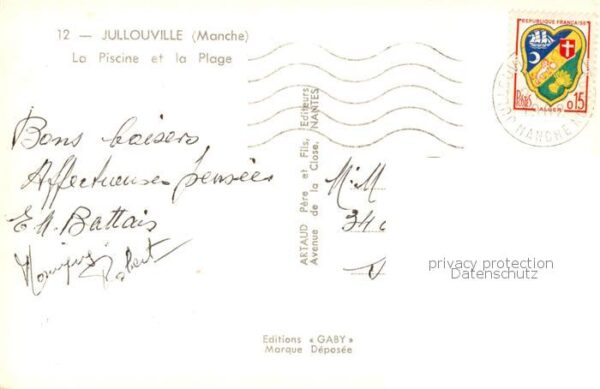 12 — JULLOUVILLE (Manche)
La Piscine et la Plage
REPUBLIQUE FRANÇAISE
Postes
0,15
ALGER
MANCHE
Bons baisers
Affectueuses pensées
E M. Battais
Robert
ARTAUD Père et Fils, Editeurs
Avenue de la Close, NANTES
M. M
34
privacy protection
Datenschutz
Editions « GABY »
Marque Déposée